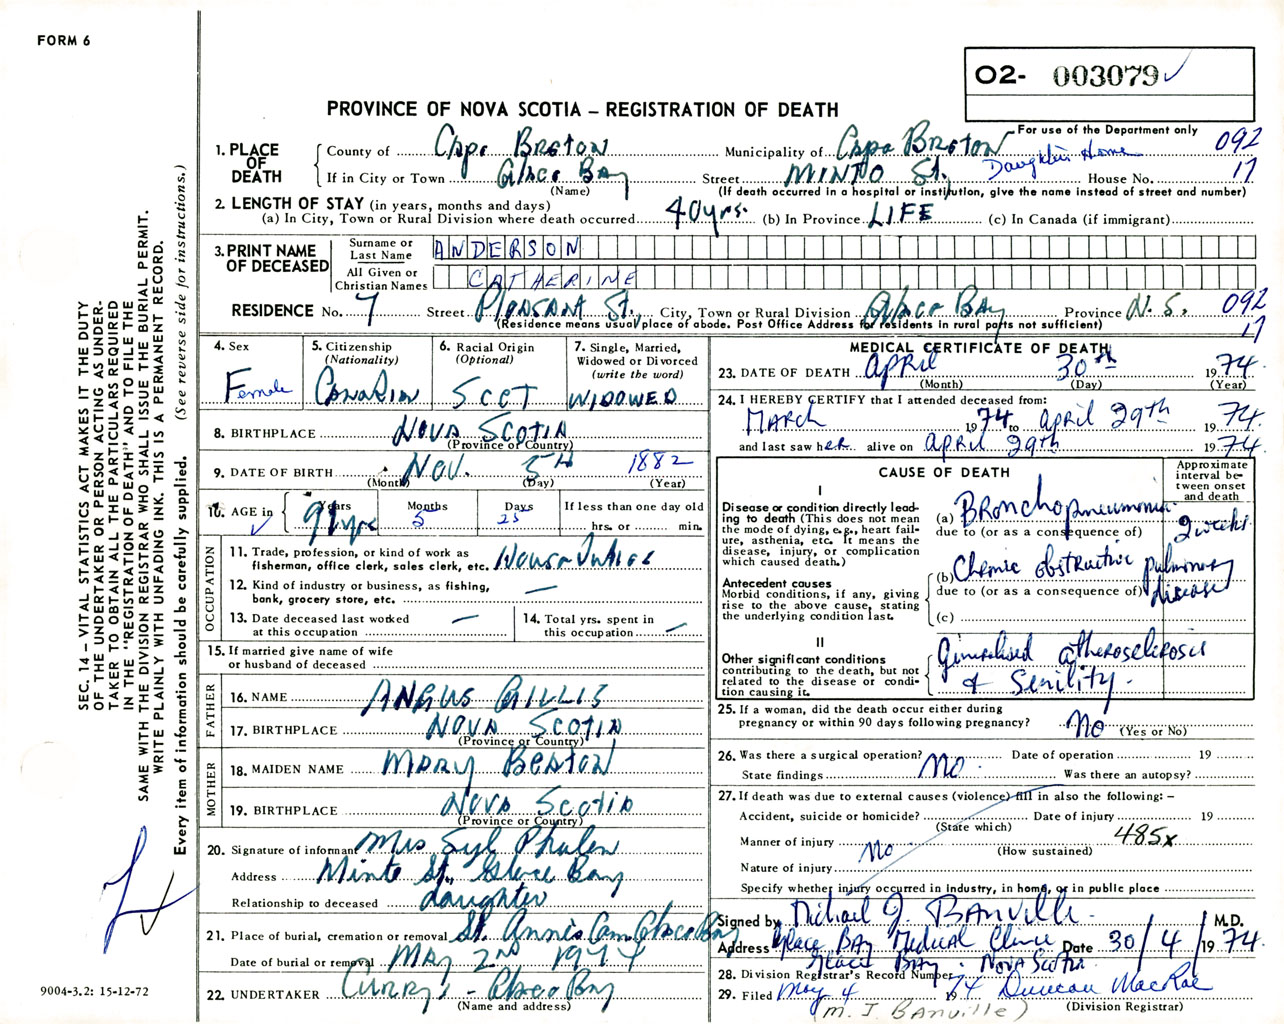 FORM 6
O2- 003079
PROVINCE OF NOVA SCOTIA – REGISTRATION OF DEATH
For use of the Department only
1. PLACE OF DEATH
County of Cape Breton Municipality of Cape Breton 092
If in City or Town Glace Bay Street MINTO St. Daughters Home House No. 17
(Name) (If death occurred in a hospital or institution, give the name instead of street and number)
2. LENGTH OF STAY (in years, months and days)
(a) In City, Town or Rural Division where death occurred 40 yrs. (b) In Province LIFE (c) In Canada (if immigrant)
3. PRINT NAME OF DECEASED
Surname or Last Name ANDERSON
All Given or Christian Names CATHERINE
RESIDENCE No. 7 Street Pleasant St. City, Town or Rural Division Glace Bay Province N.S. 092
(Residence means usual place of abode. Post Office Address for residents in rural parts not sufficient) 17
4. Sex Female
5. Citizenship (Nationality) Canadian
6. Racial Origin (Optional) SCOT
7. Single, Married, Widowed or Divorced (write the word) WIDOWED
8. BIRTHPLACE NOVA SCOTIA
(Province or Country)
9. DATE OF BIRTH Nov. 5th 1882
(Month) (Day) (Year)
10. AGE in Years 91 yrs Months 5 Days 25 If less than one day old
hrs. or min.
OCCUPATION
11. Trade, profession, or kind of work as fisherman, office clerk, sales clerk, etc. Housewife
12. Kind of industry or business, as fishing, bank, grocery store, etc. —
13. Date deceased last worked at this occupation —
14. Total yrs. spent in this occupation —
15. If married give name of wife or husband of deceased
FATHER
16. NAME ANGUS GILLIS
17. BIRTHPLACE NOVA SCOTIA
(Province or Country)
MOTHER
18. MAIDEN NAME MARY BEATON
19. BIRTHPLACE NOVA SCOTIA
(Province or Country)
20. Signature of informant Mrs Syl Phalen
Address Minto St., Glace Bay
Relationship to deceased daughter
21. Place of burial, cremation or removal St. Anne's Cem. Glace Bay
Date of burial or removal May 2nd 1974
22. UNDERTAKER Curry's - Glace Bay
(Name and address)
MEDICAL CERTIFICATE OF DEATH
23. DATE OF DEATH April 30th 1974.
(Month) (Day) (Year)
24. I HEREBY CERTIFY that I attended deceased from:
MARCH 1974 to April 29th 1974.
and last saw her alive on April 29th 1974.
CAUSE OF DEATH
Approximate interval between onset and death
I
Disease or condition directly leading to death (This does not mean the mode of dying, e.g., heart failure, asthenia, etc. It means the disease, injury, or complication which caused death.)
(a) Bronchopneumonia 2 weeks
due to (or as a consequence of)
Antecedent causes
Morbid conditions, if any, giving rise to the above cause, stating the underlying condition last.
(b) Chronic obstructive pulmonary disease
due to (or as a consequence of)
(c)
II
Other significant conditions contributing to the death, but not related to the disease or condition causing it.
Generalised atherosclerosis
& Senility.
25. If a woman, did the death occur either during pregnancy or within 90 days following pregnancy? No (Yes or No)
26. Was there a surgical operation? No. Date of operation 19
State findings Was there an autopsy?
27. If death was due to external causes (violence) fill in also the following: –
Accident, suicide or homicide? Date of injury 19
(State which)
Manner of injury No 485x
(How sustained)
Nature of injury
Specify whether injury occurred in industry, in home, or in public place
Signed by Michael J. Banville M.D.
Address Glace Bay Medical Clinic Date 30/4/1974.
Glace Bay. Nova Scotia
28. Division Registrar's Record Number
29. Filed May 4 1974 Duncan MacRae
(Division Registrar)
(M. J. Banville)
SEC. 14 – VITAL STATISTICS ACT MAKES IT THE DUTY
OF THE UNDERTAKER OR PERSON ACTING AS UNDER-
TAKER TO OBTAIN ALL THE PARTICULARS REQUIRED
IN THE "REGISTRATION OF DEATH" AND TO FILE THE
SAME WITH THE DIVISION REGISTRAR WHO SHALL ISSUE THE BURIAL PERMIT.
WRITE PLAINLY WITH UNFADING INK. THIS IS A PERMANENT RECORD.
Every item of information should be carefully supplied. (See reverse side for instructions.)
9004-3.2: 15-12-72